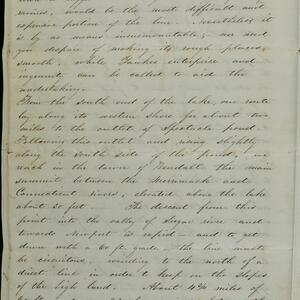 mined, would be the most difficult and
expensive portion of the line. Nevertheless it
is by no means insurmountable; we need
you despair of making its rough places
smooth, while Yankee enterprise and
ingenuity can be called to aid the
undertaking.
From the south end of the lake, our route
lay along its western shore for about two
miles to the outlet of Spectacle pond.
Following this outlet and rising slightly
along the south side of the pond, we
reach in the town of the main
summit between the Merrimack and
Connecticut rivers, elevated above the lake
about 80 feet. The descent from this
point into the valley of Sugar river and
towards Newport is rapid — and to get
down with a 60 ft. grade, the line must
be circuitous, winding to the north of a
direct line in order to keep on the slopes
of the high land. About 4¾ miles of